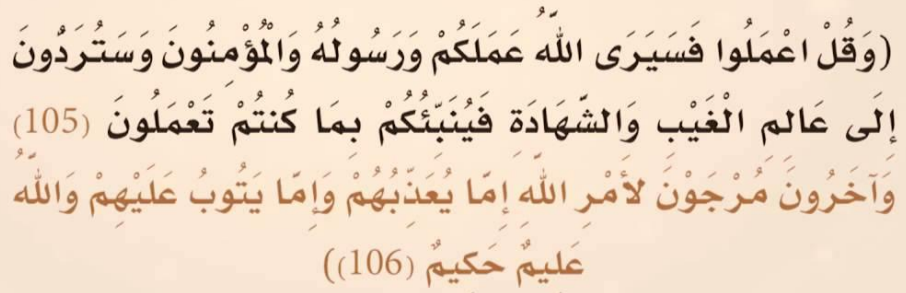 (وَقُلْ اعْمَلُوا فَسَيَرَى اللَّهُ عَمَلَكُمْ وَرَسُولُهُ وَالْمُؤْمِنُونَ وَسَتُرَدُّونَ
إِلَى عَالِمِ الْغَيْبِ وَالشَّهَادَةِ فَيُنَبِّئُكُمْ بِمَا كُنتُمْ تَعْمَلُونَ (105)
وَآخَرُونَ مُرْجَوْنَ لأَمْرِ اللَّهِ إِمَّا يُعَذِّبُهُمْ وَإِمَّا يَتُوبُ عَلَيْهِمْ وَاللَّهُ
عَلِيمٌ حَكِيمٌ (106))